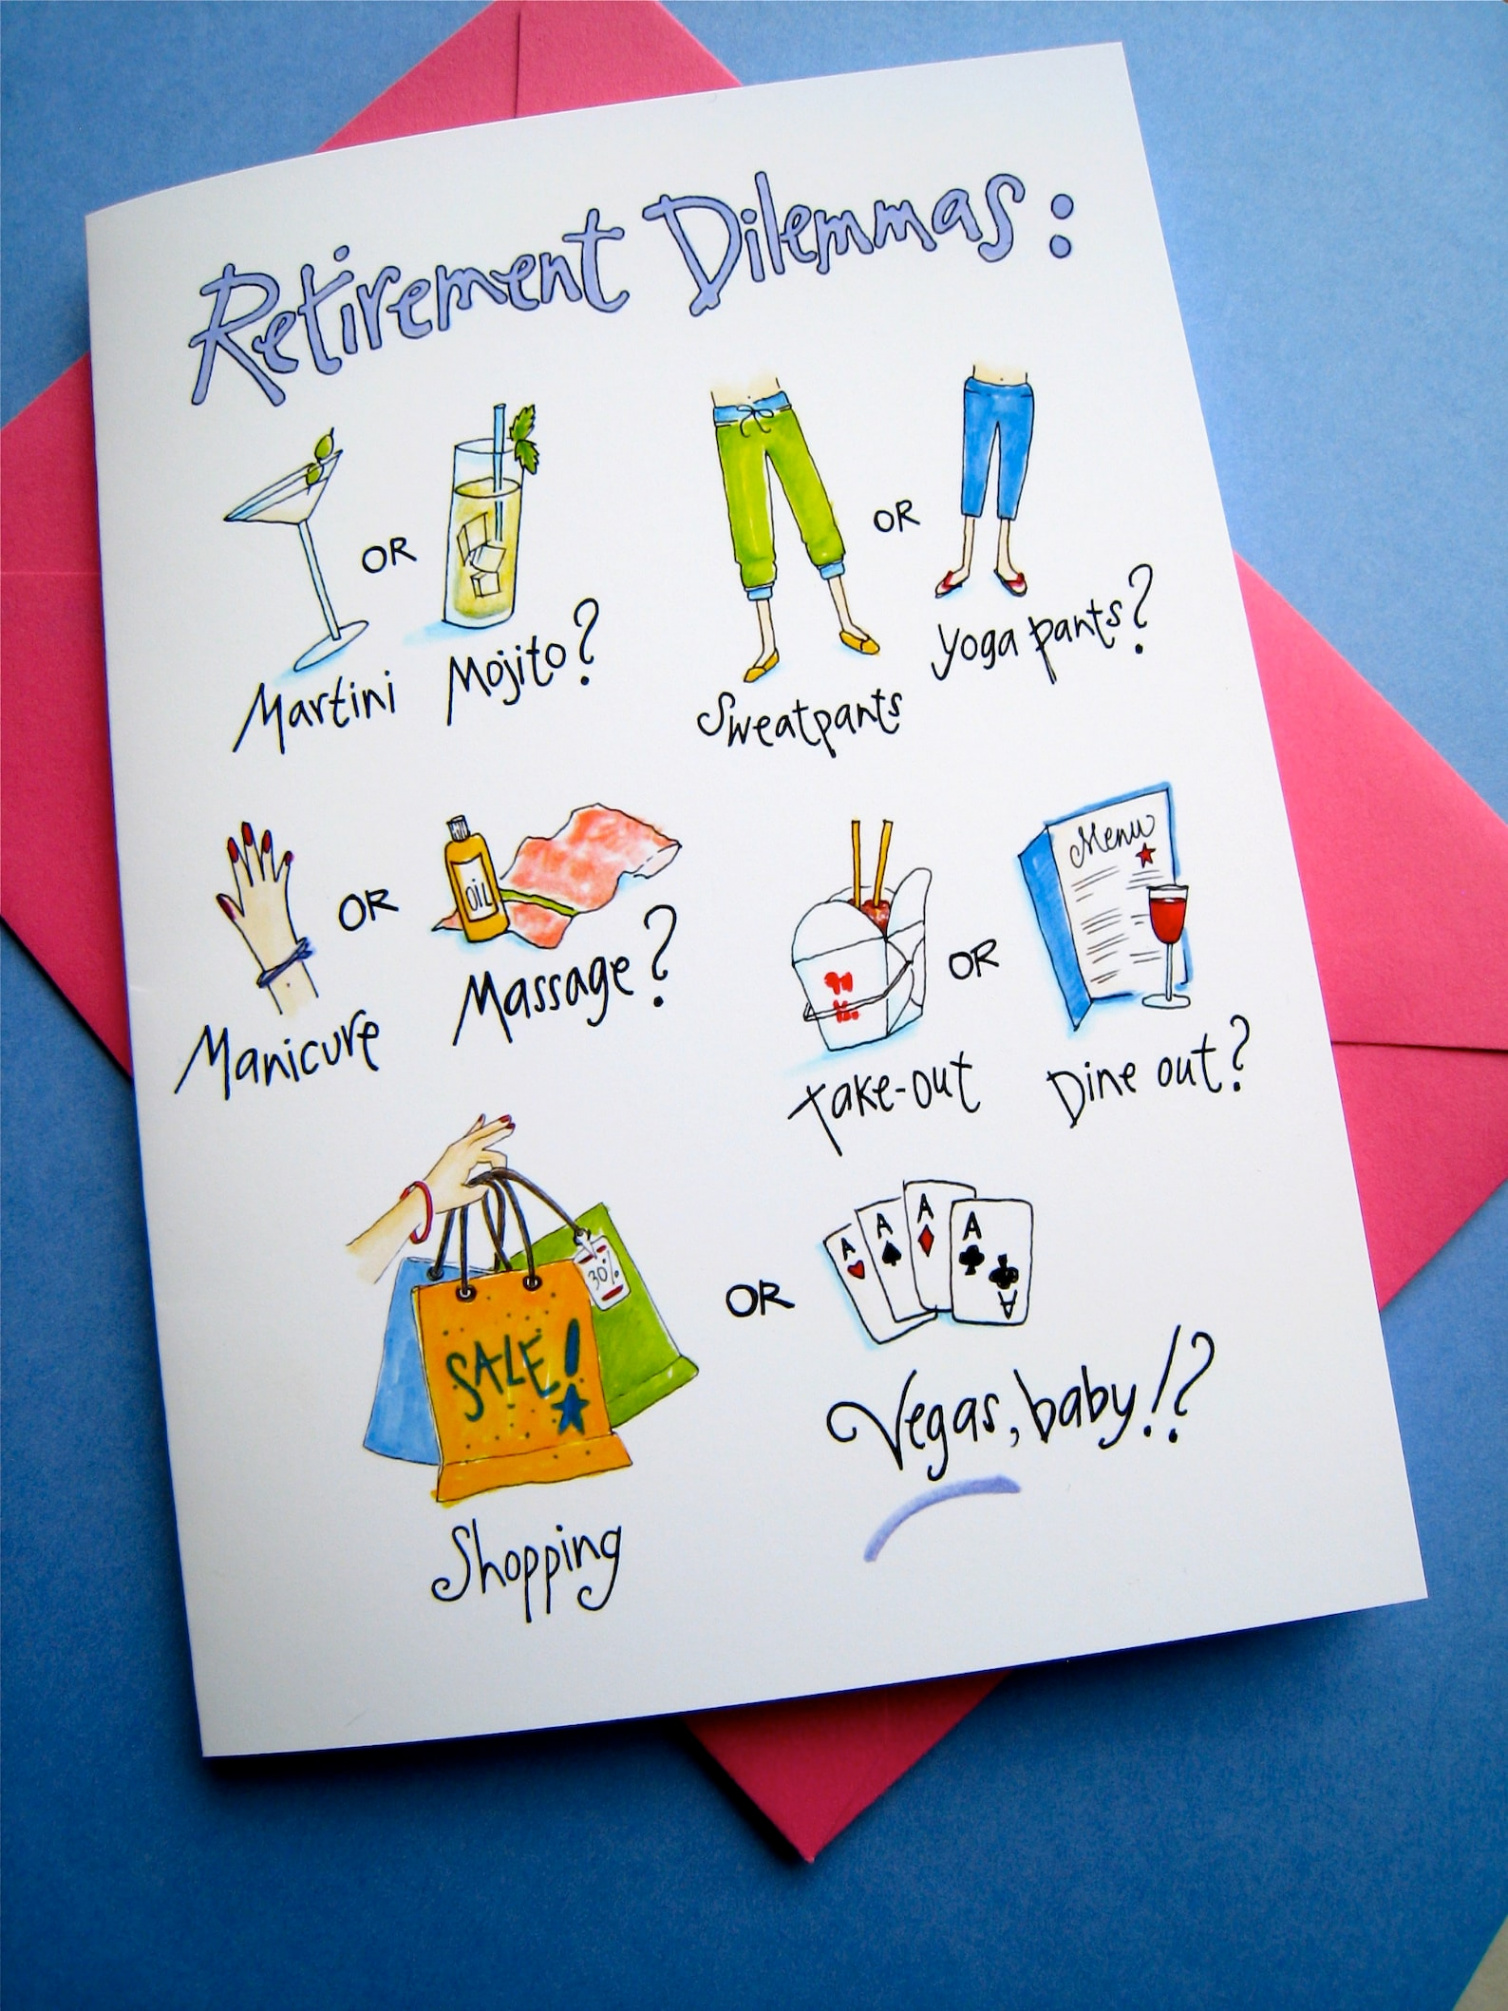 Retirement Dilemmas:
Martini OR Mojito?
Sweatpants OR yoga pants?
OIL
Manicure OR Massage?
Menu
Take-out OR Dine out?
30%
SALE!
A A A A
A
Shopping OR Vegas, baby!?